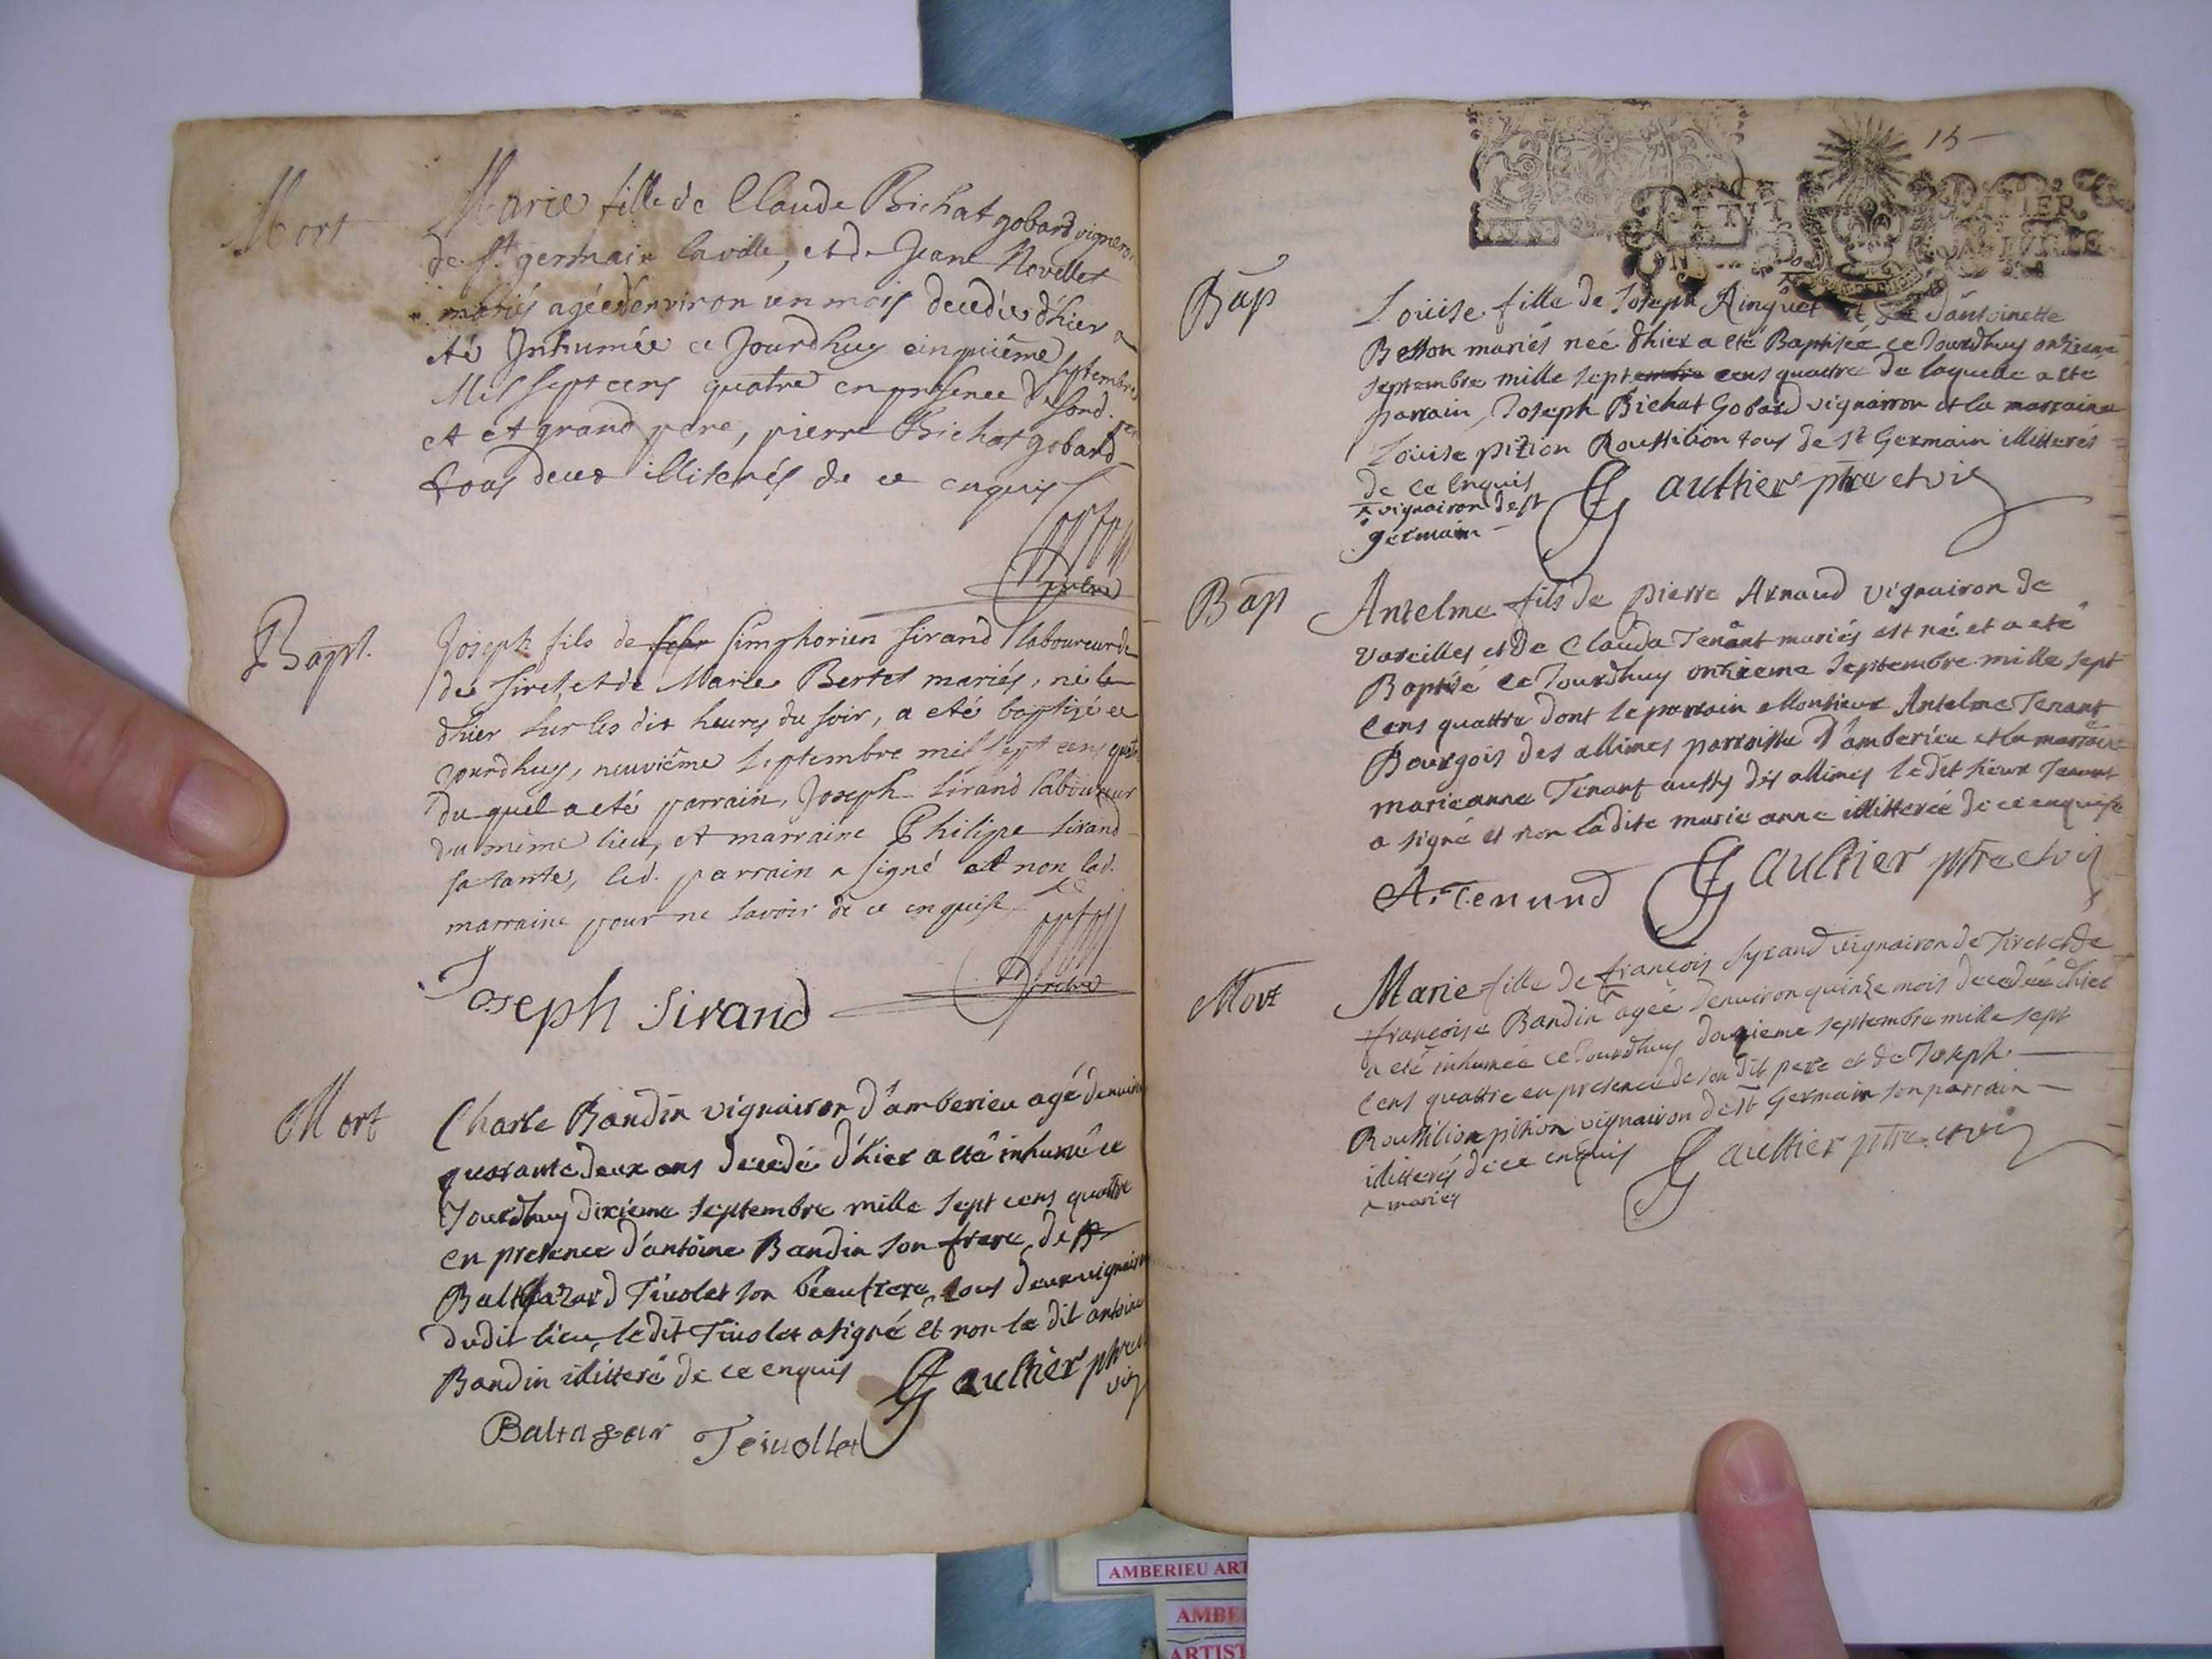 Mort
Marie fille de Claude Bichat gobard vigneron
de st germain la ville, et de Jeane Novellet
mariés agée denviron un mois decedée d'hier a
été Inhumée ce Jourdhuy cinquiême septembre
Mil sept cens quatre en presence de sond. per
et et grand pere, pierre Bichat gobard
tous deux illiterés de ce enquis
Bapt.
Joseph fils de Simphorien Sirand laboureur de
de Tiret, et de Marie Bertet mariés, né le
dhier sur les dix heures du soir, a eté baptizé ce
jourdhuy, neuviême septembre mil sept cens quatre
du quel a eté parrain, Joseph Sirand laboureur
du même lieu, et marraine Philippe Sirand
sa tante, led. parrain a signé et non lad.
marraine pour ne savoir de ce enquise
Joseph Sirand
Mort
Charle Bandin vignairon d'amberieu agé denviron
quarante deux ans decedé d'hier a eté inhumé ce
Jourdhuy dixieme septembre mille sept cens quattre
en presence d'antoine Bandin son frere, de B
Balthazard Tiuolet son beaufrere, tous deux vignairon
dudit lieu, le dit Tiuolet a signé et non le dit antoine
Bandin illitteré de ce enquis Gaultier ptre et
vic
Baltazar Teiuollet
15
PETIT PAPIER
Bap
Louise fille de Joseph Ringuet et d'antoinette
Belton mariés neé dhier a eté Baptisée ce Jourdhuy onzieme
septembre mille septembre cens quattre de laquelle a ete
parrain Joseph Bichat Gobard vignairon et la marraine
Louise pition Roussilion tous de st Germain illitterés
de ce enquis Gaultier ptre et vic
vignairon de st
germain
Bap
Antelme fils de pierre Arnaud vignairon de
Vareilles et de Clauda Tenant mariés est né et a eté
Baptisé ce Jourdhuy onzieme septembre mille sept
cens quattre dont le parrain Monsieur Antelme Tenant
Bourgois des allimes parroisse d'amberieu et la marraine
marieanne Tenant aussy des allimes le dit sieur Tenant
a signé et non la dite marie anne illitterée de ce enquise
A. Tenand Gaultier ptre et vic
Mort
Marie fille de françois Syrand vignairon de Tiret et de
françoise Bandin agée denviron quinze mois decedée dhier
a eté inhumée ce Jourdhuy douzieme septembre mille sept
cens quattre en presence de son dit pere et de Joseph
Roussilion pition vignairon de st Germain son parrain
illitterés de ce enquis Gaultier ptre et vic
mariés
AMBERIEU ART
AMBE
ARTIST